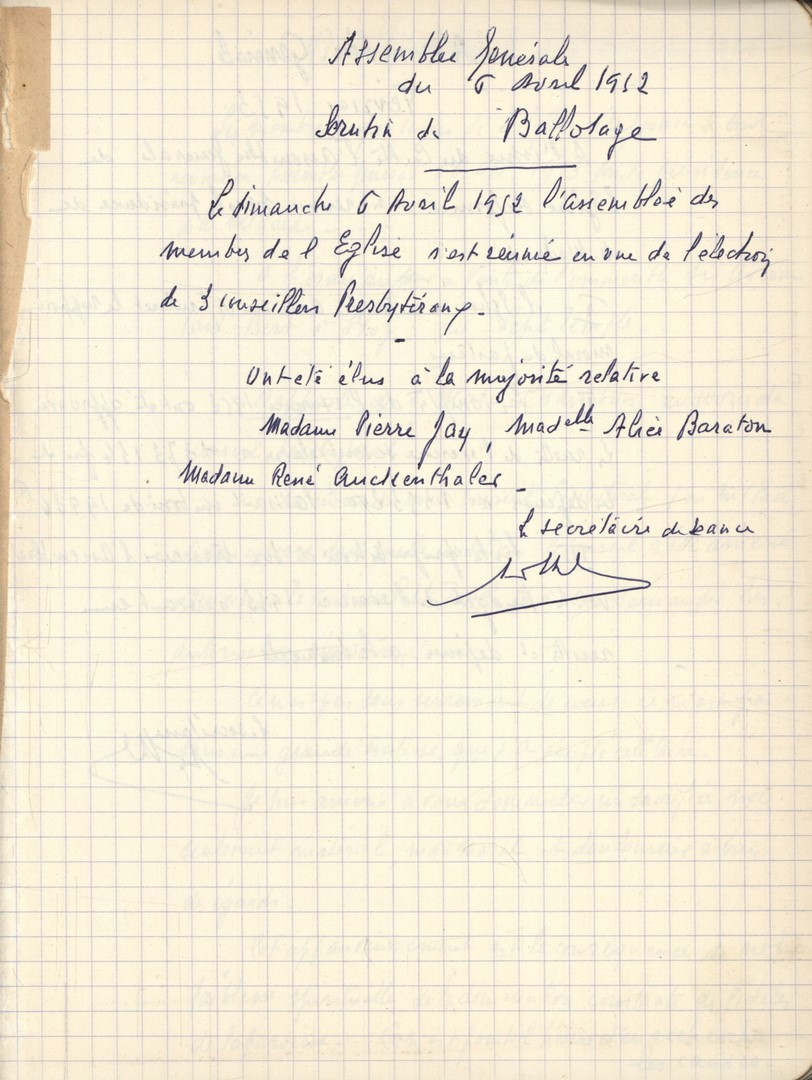 Assemblée Générale
du 6 Avril 1952
Scrutin de Ballotage
Le dimanche 6 Avril 1952 l'assemblée des
membres de l'Eglise s'est réunie en vue de l'élection
de 3 conseillers Presbytéraux.
Ont été élus à la majorité relative
Madame Pierre Jay, Madelle Alice Baraton
Madame René Auckenthaler
Le secrétaire de séance